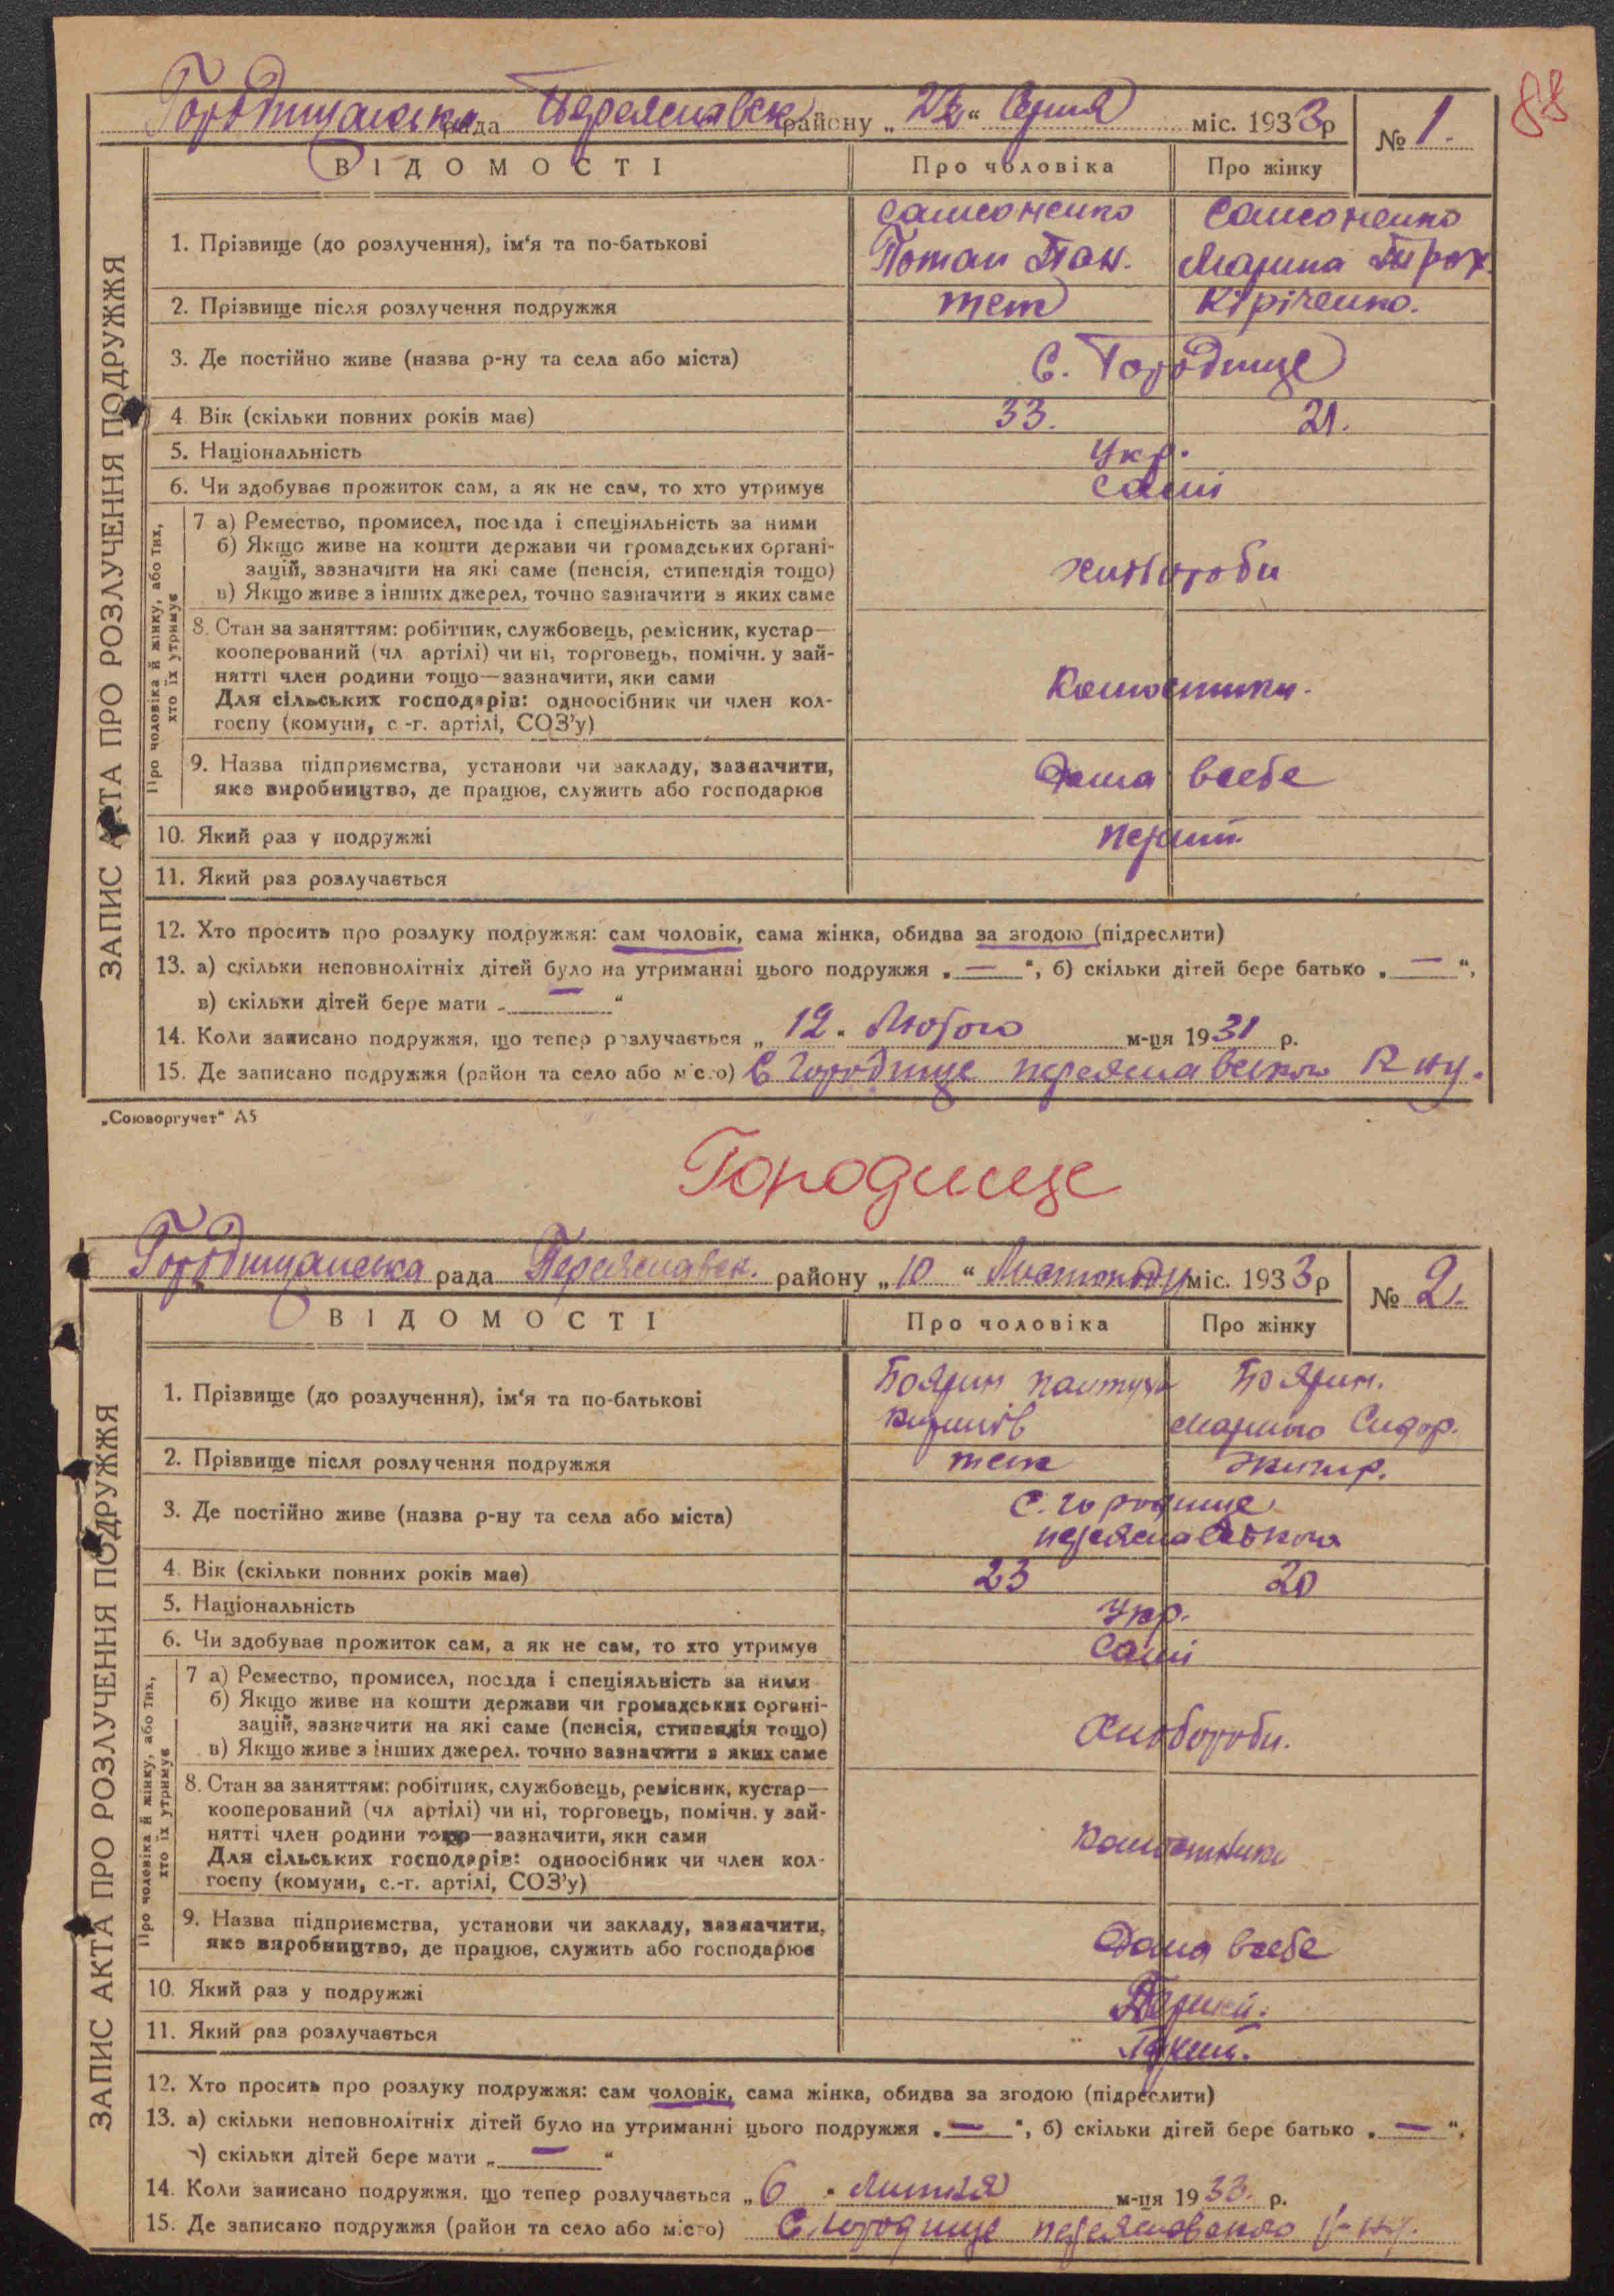 88
Городищанська рада Переяславськ району „22“ Серпня міс. 1933р № 1.
ВІДОМОСТІ Про чоловіка Про жінку
1. Прізвище (до розлучення), ім‘я та по-батькові Самсоненко Самсоненко
Потап Пан. Марина Трох.
2. Прізвище після розлучення подружжя теж Кіріченко.
3. Де постійно живе (назва р-ну та села або міста) С. Городище
4. Вік (скільки повних років має) 33. 21.
5. Національність Укр.
6. Чи здобував прожиток сам, а як не сам, то хто утримує самі
7 а) Ремество, промисел, посада і спеціяльність за ними
б) Якщо живе на кошти держави чи громадських органі-
зацій, зазначити на які саме (пенсія, стипендія тощо) хлібороби
в) Якщо живе з інших джерел, точно зазначити з яких саме
8. Стан за заняттям: робітник, службовець, ремісник, кустар—
кооперований (чл артілі) чи ні, торговець, помічн. у зай-
нятті член родини тощо—зазначити, яки сами
Для сільських господарів: одноосібник чи член кол-
госпу (комуни, с.-г. артілі, СОЗ’у)
9. Назва підприємства, установи чи закладу, зазначити, Дома всебе
яке виробництво, де працює, служить або господарює
10. Який раз у подружжі перший
11. Який раз розлучається
12. Хто просить про розлуку подружжя: сам чоловік, сама жінка, обидва за згодою (підреслити)
13. а) скільки неповнолітніх дітей було на утриманні цього подружжя „—“, б) скільки дітей бере батько „—“,
в) скільки дітей бере мати „—“
14. Коли записано подружжя, що тепер розлучається „12“ Лютого м-ця 1931 р.
15. Де записано подружжя (район та село або місто) С Городище переяславського Р ну.
ЗАПИС АКТА ПРО РОЗЛУЧЕННЯ ПОДРУЖЖЯ
Про чоловіка й жінку, або тих,
хто їх утримує
„Союзоргучет“ А5
Городище
Городищанська рада Переяславськ. району „10“ Листопаду міс. 1933р № 2.
ВІДОМОСТІ Про чоловіка Про жінку
1. Прізвище (до розлучення), ім‘я та по-батькові Боярин Боярин.
Сидор.
2. Прізвище після розлучення подружжя теж
3. Де постійно живе (назва р-ну та села або міста) С. Городище
переяславського
4. Вік (скільки повних років має) 23 20
5. Національність Укр.
6. Чи здобував прожиток сам, а як не сам, то хто утримує Самі
7 а) Ремество, промисел, посада і спеціяльність за ними
б) Якщо живе на кошти держави чи громадських органі-
зацій, зазначити на які саме (пенсія, стипендія тощо) Хлібороби.
в) Якщо живе з інших джерел, точно зазначити з яких саме
8. Стан за заняттям: робітник, службовець, ремісник, кустар—
кооперований (чл артілі) чи ні, торговець, помічн. у зай-
нятті член родини тощо—зазначити, яки сами
Для сільських господарів: одноосібник чи член кол-
госпу (комуни, с.-г. артілі, СОЗ’у)
9. Назва підприємства, установи чи закладу, зазначити, Дома всебе
яке виробництво, де працює, служить або господарює
10. Який раз у подружжі Перший.
11. Який раз розлучається
12. Хто просить про розлуку подружжя: сам чоловік, сама жінка, обидва за згодою (підреслити)
13. а) скільки неповнолітніх дітей було на утриманні цього подружжя „—“, б) скільки дітей бере батько „—“,
в) скільки дітей бере мати „—“
14. Коли записано подружжя, що тепер розлучається „6“ Липня м-ця 1933. р.
15. Де записано подружжя (район та село або місто) С. Городище переяславського р-ну.
ЗАПИС АКТА ПРО РОЗЛУЧЕННЯ ПОДРУЖЖЯ
Про чоловіка й жінку, або тих,
хто їх утримує